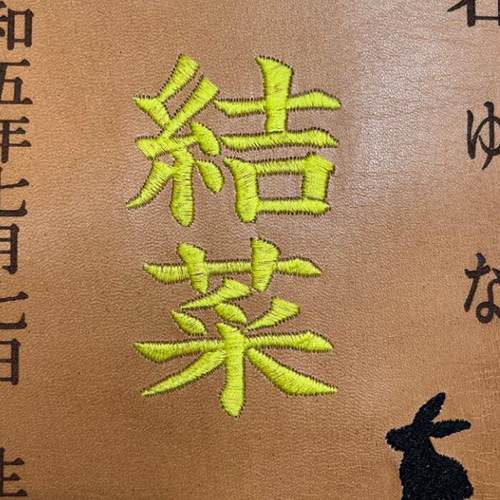 ゆな
結菜
和五年七月七日 生